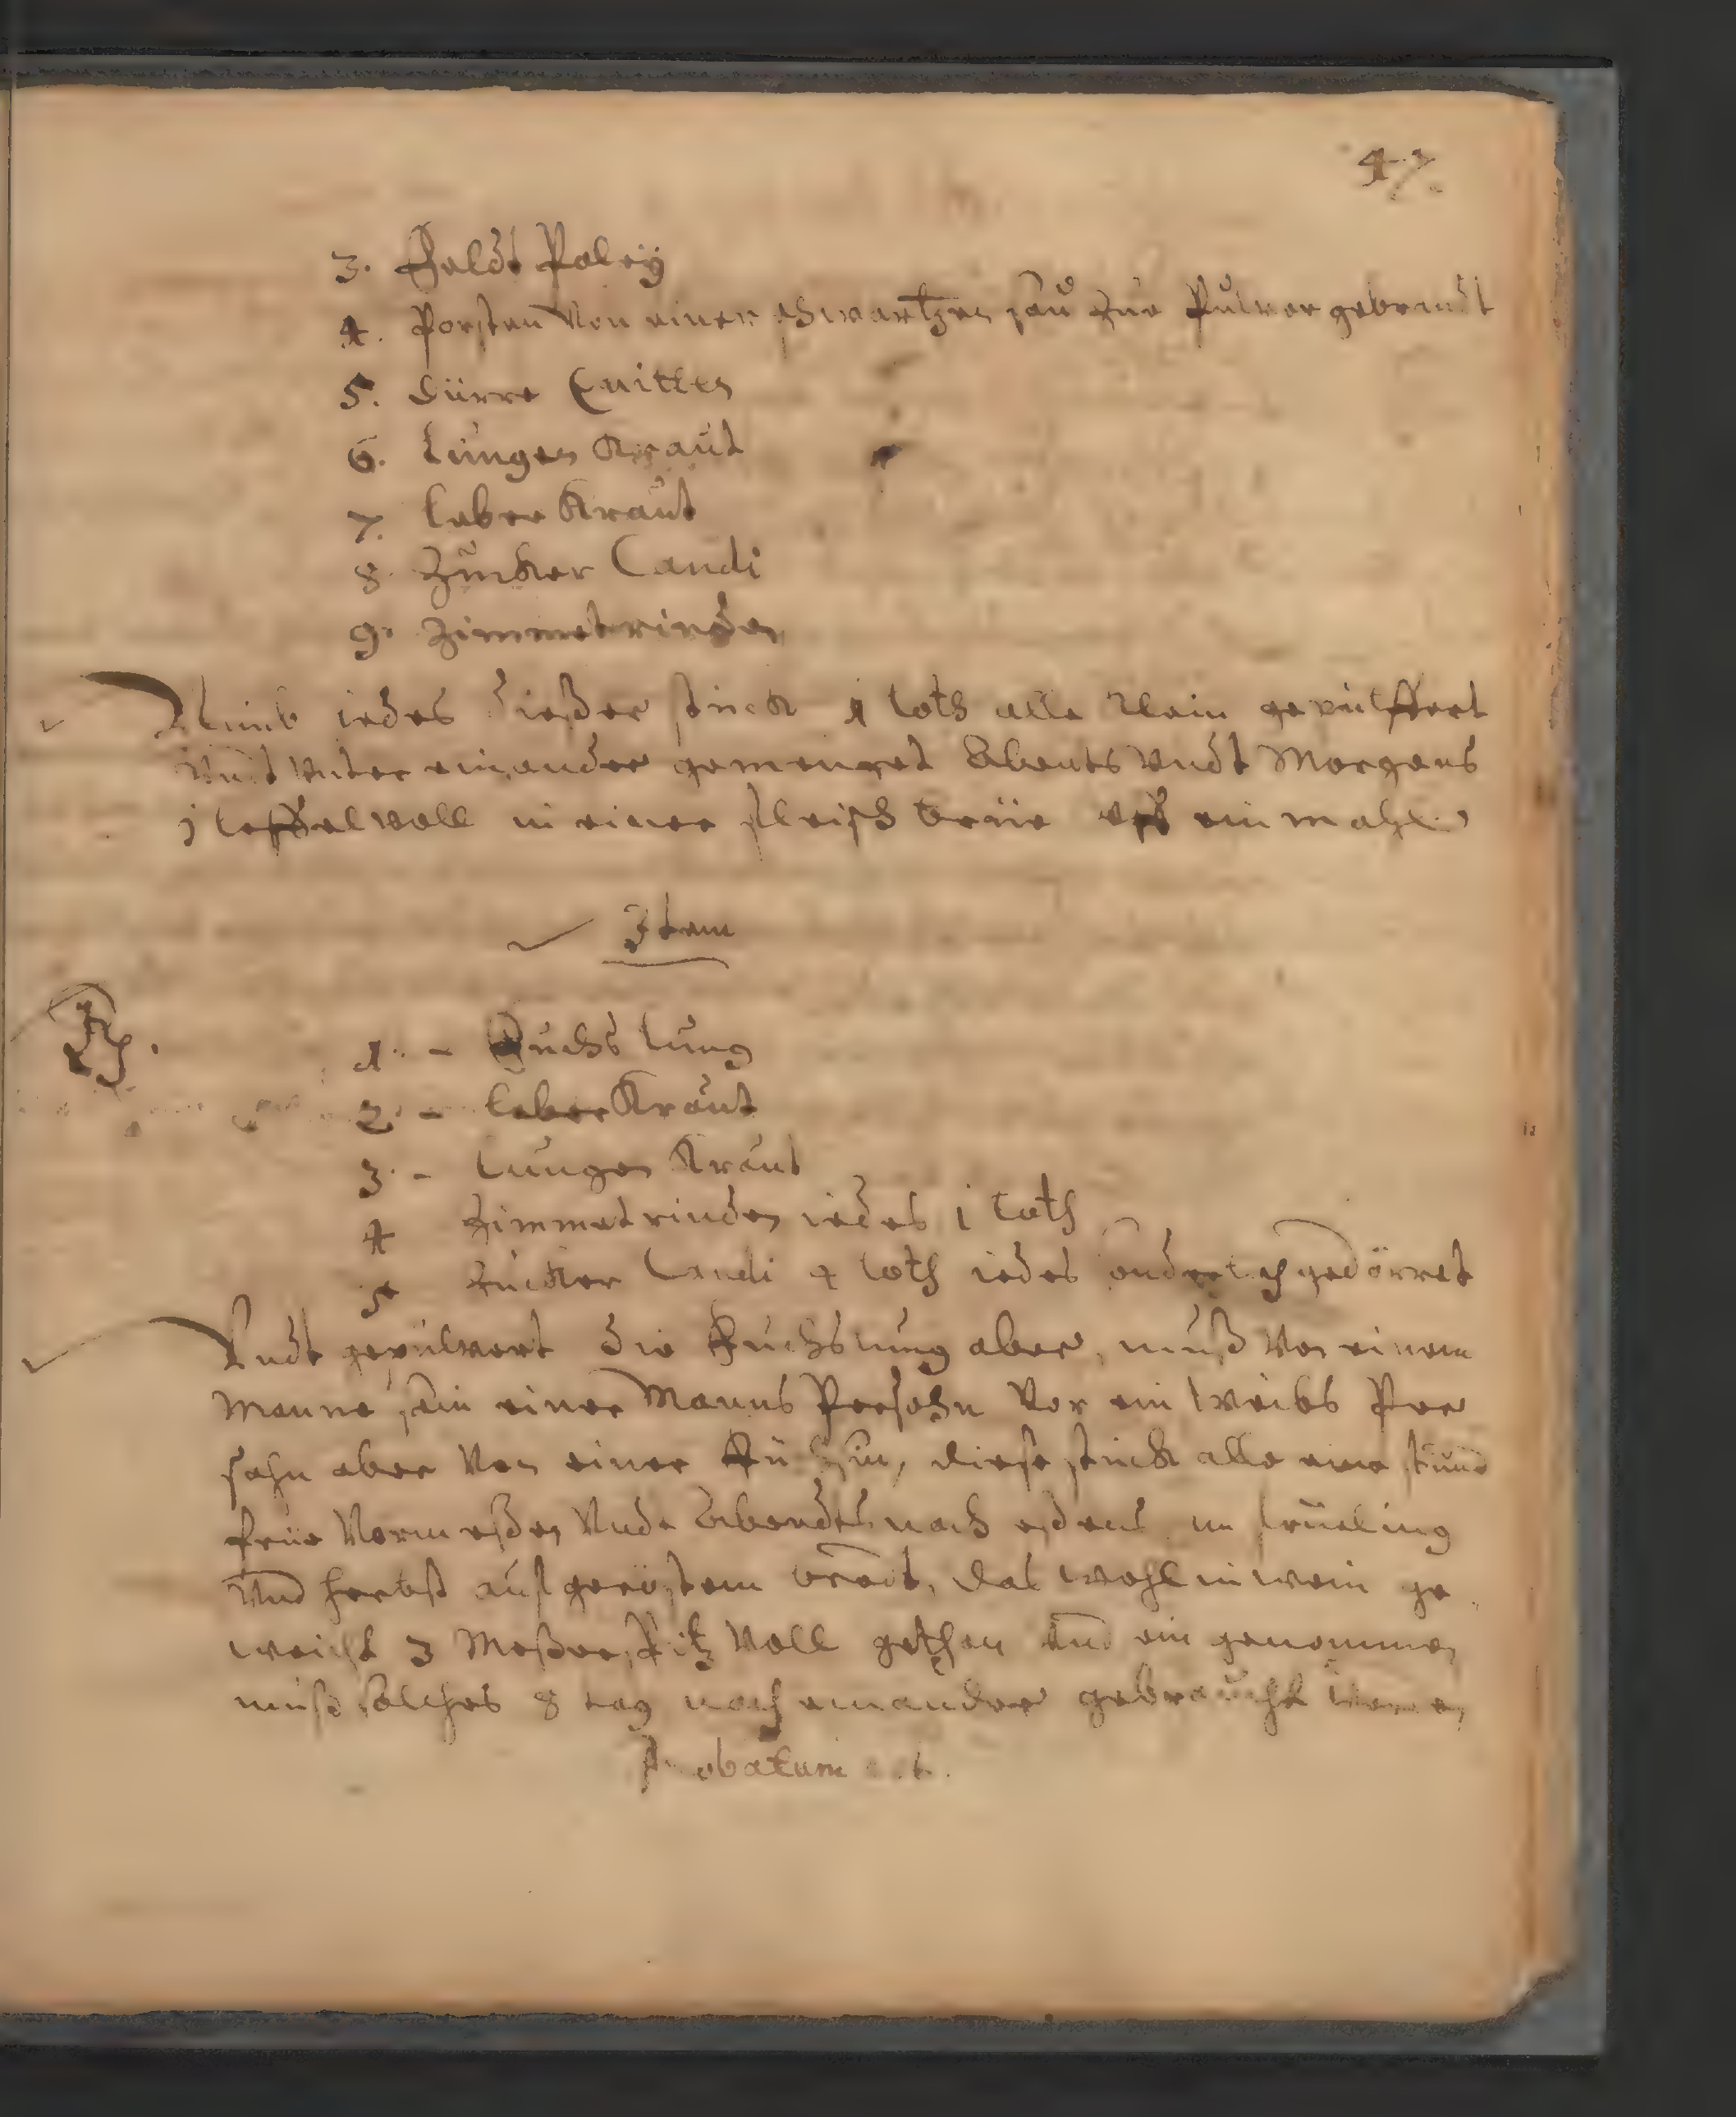 47.
3. Feldt Poleÿ
4. Porsten Von einer schwartzen sau zue Pulver gebrandt
5. dürre Quitten
6. Lungen Kraut
7. Leber Kraut
8. Zucker Candi
9. Zimmetrinden
Nimb iedes dießer stück 1 loth alle klein gepulffert
Undt Unter einander gemenget Abents Undt Morgens
j leffel voll in einer fleisch brüe auf ein mahl
Item
1. - Fuchs lung
2. - Leber Kraut
3. - Lungen Kraut
4 Zimmet rinden iedes j loth
5 Zucker Candi 4 loth iedes gedörret
Undt gepulvert die Fuchslung aber, muß Von einem
Manne sein einer Manns Persohn Vor ein Weibs Per
sohn aber Von einer Füchsin, diese stück alle eine stund
früe Vorm eßen Undt Abendts nach eßens im früeling
Und herbst auf geröstem brodt, das wohl in wein ge
weicht 3 Meßerspitz Voll gethan Und ein genommen
muß solches 8 tag nach einander gebraucht werden
Probatum est.